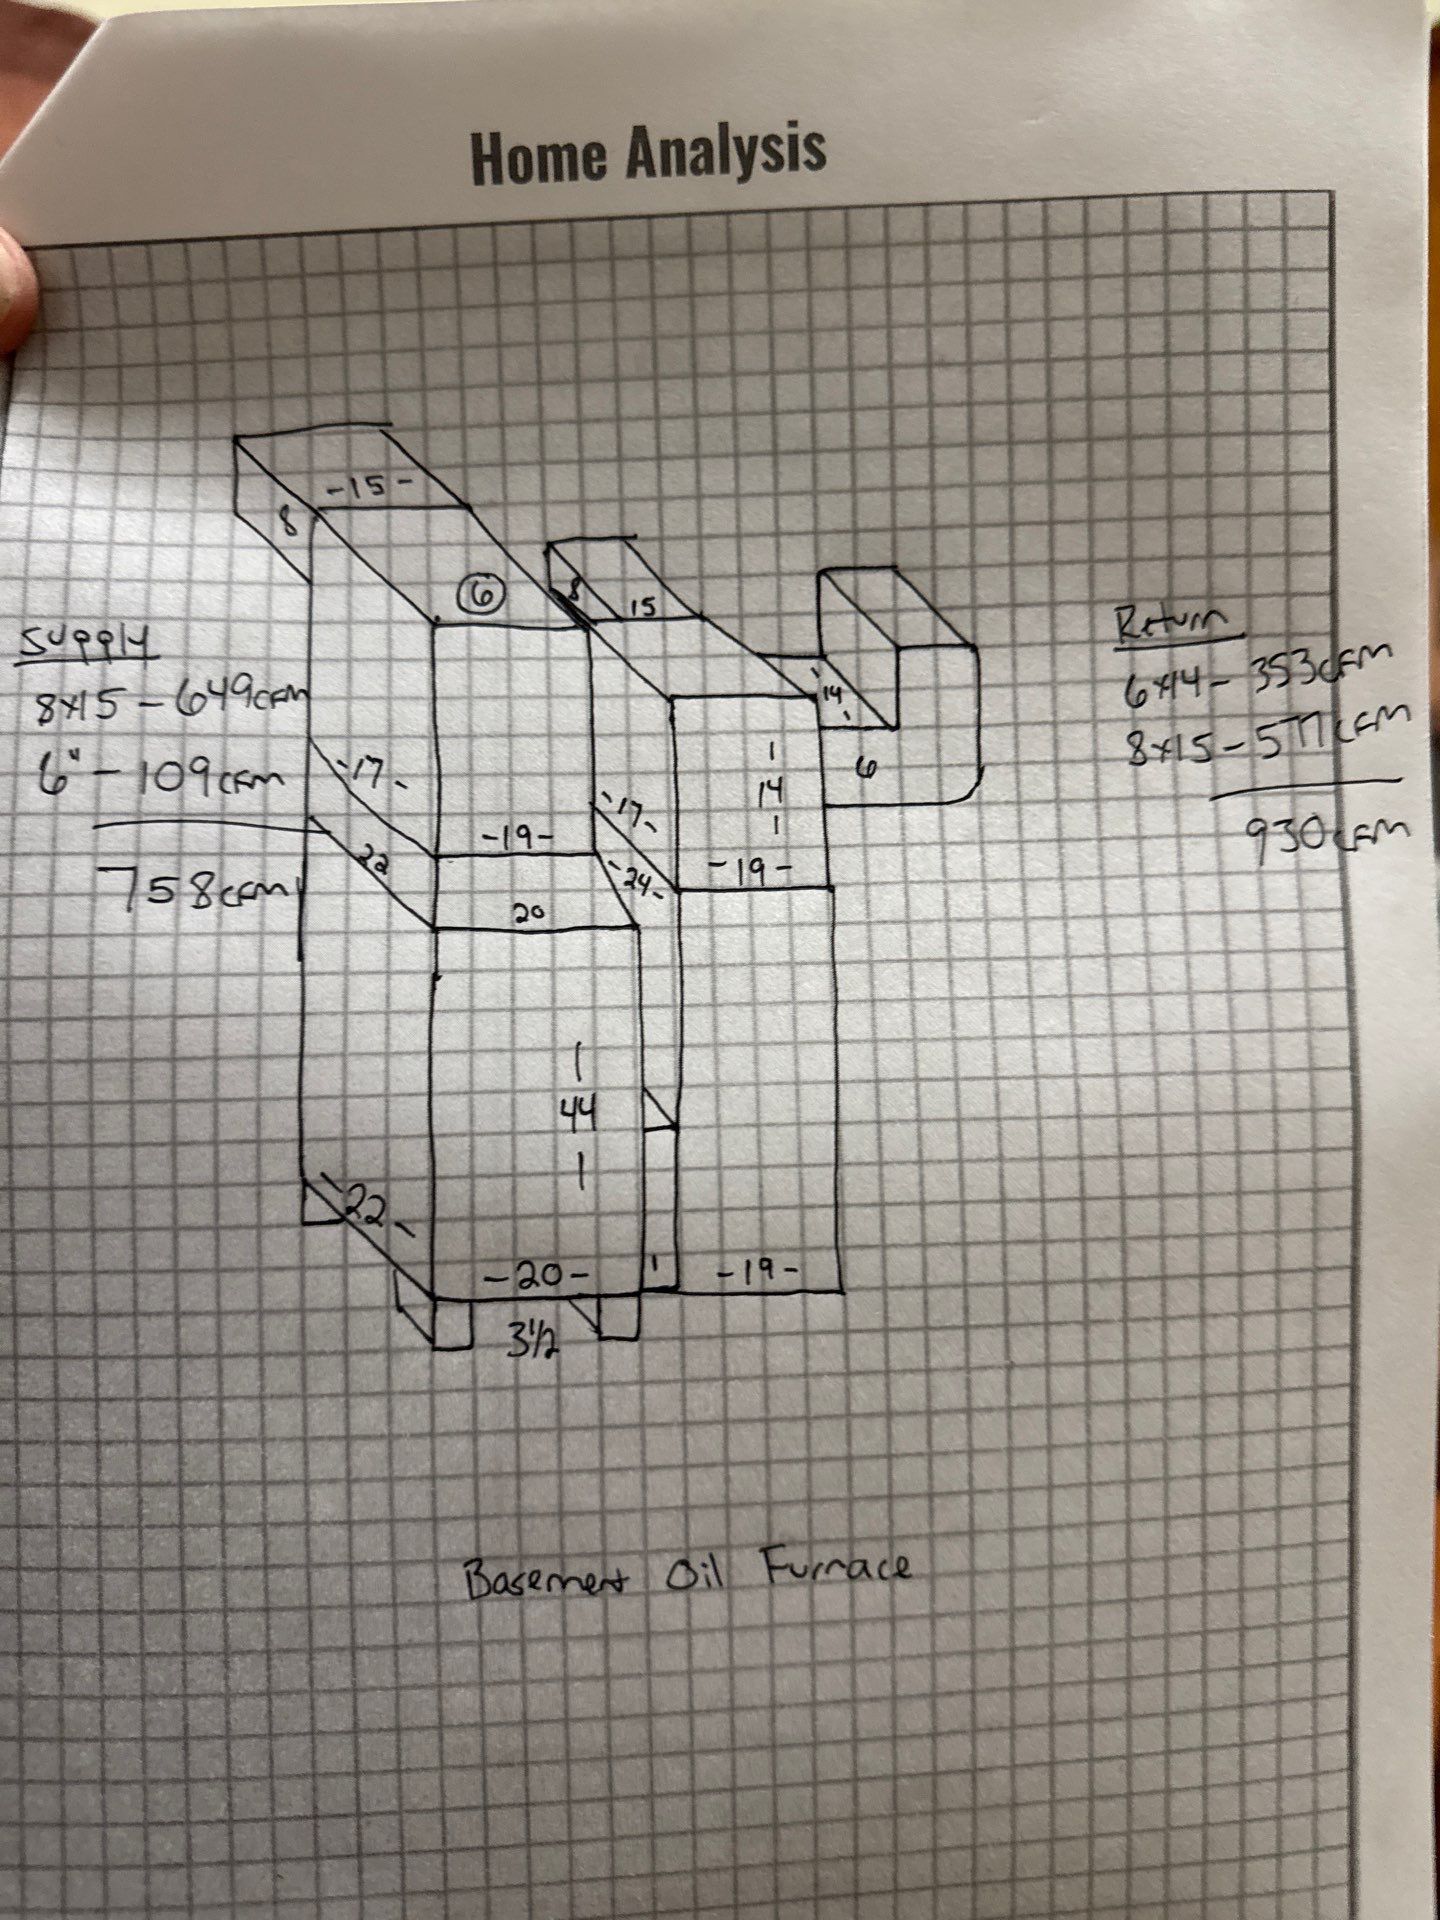 Home Analysis
-15-
8
6
8
15
Supply
8x15 - 649cfm
6" - 109cfm
758cfm
Return
6x14 - 353cfm
8x15 - 577cfm
930cfm
-14-
6
-17-
-14-
-17-
-19-
-19-
22
-24-
20
-44-
-22-
-20-
1
-19-
3 1/2
Basement Oil Furnace